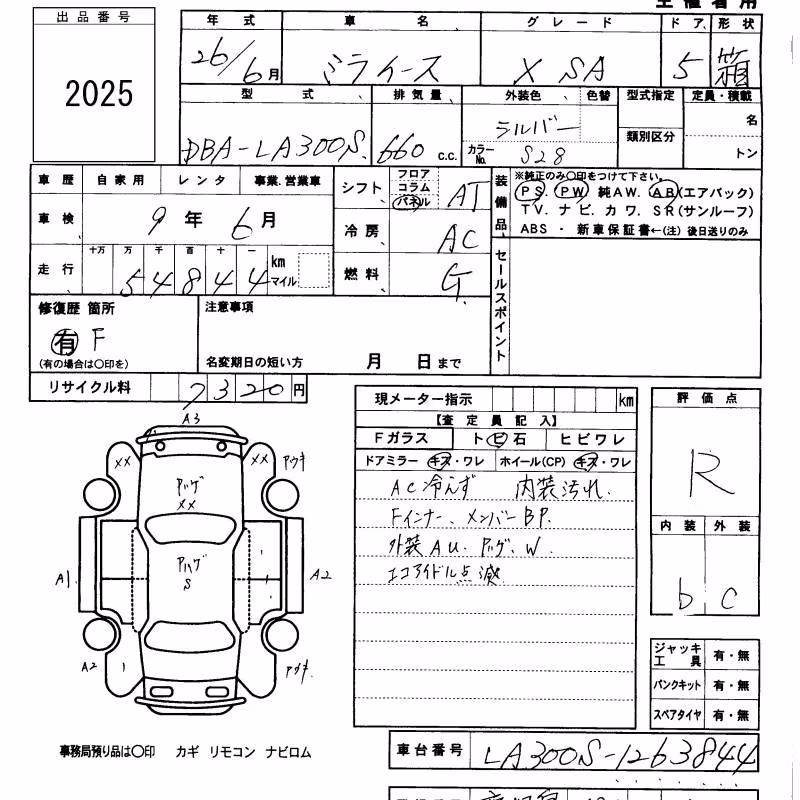 出品番号
2025
年式 車名 グレード ドア 形状
26/6月 ミライース X SA 5 箱
型式 排気量 外装色 色替 型式指定 定員・積載
DBA-LA300S 660 c.c. シルバー 類別区分 名
カラーNo. S28 トン
車歴 自家用 レンタ 事業.営業車
車検 9年6月
走行 十万 万 千 百 十 一 km マイル
54844
シフト フロア コラム パネル AT
冷房 AC
燃料 G
装備品
※純正のみ○印をつけて下さい。
PS. PW 純AW. AB(エアバック)
TV. ナビ. カワ. SR(サンルーフ)
ABS ・ 新車保証書←(注)後日送りのみ
セールスポイント
修復歴 箇所
有 F
(有の場合は○印を)
注意事項
名変期日の短い方 月 日まで
リサイクル料 7320円
現メーター指示 km
【査定員記入】
Fガラス トビ石 ヒビワレ
ドアミラー キズ・ワレ ホイール(CP) キズ・ワレ
AC冷えず 内装汚れ
Fインナー、メンバーBP.
外装AU. ハゲ. W
エコアイドル点滅
評価点
R
内装 外装
b c
ジャッキ工具 有・無
パンクキット 有・無
スペアタイヤ 有・無
A3
XX XX アウキ
ハゲ
XX
ハゲ
S
A1 A2
A2 アウキ
事務局預り品は○印 カギ リモコン ナビロム
車台番号 LA300S-1263844